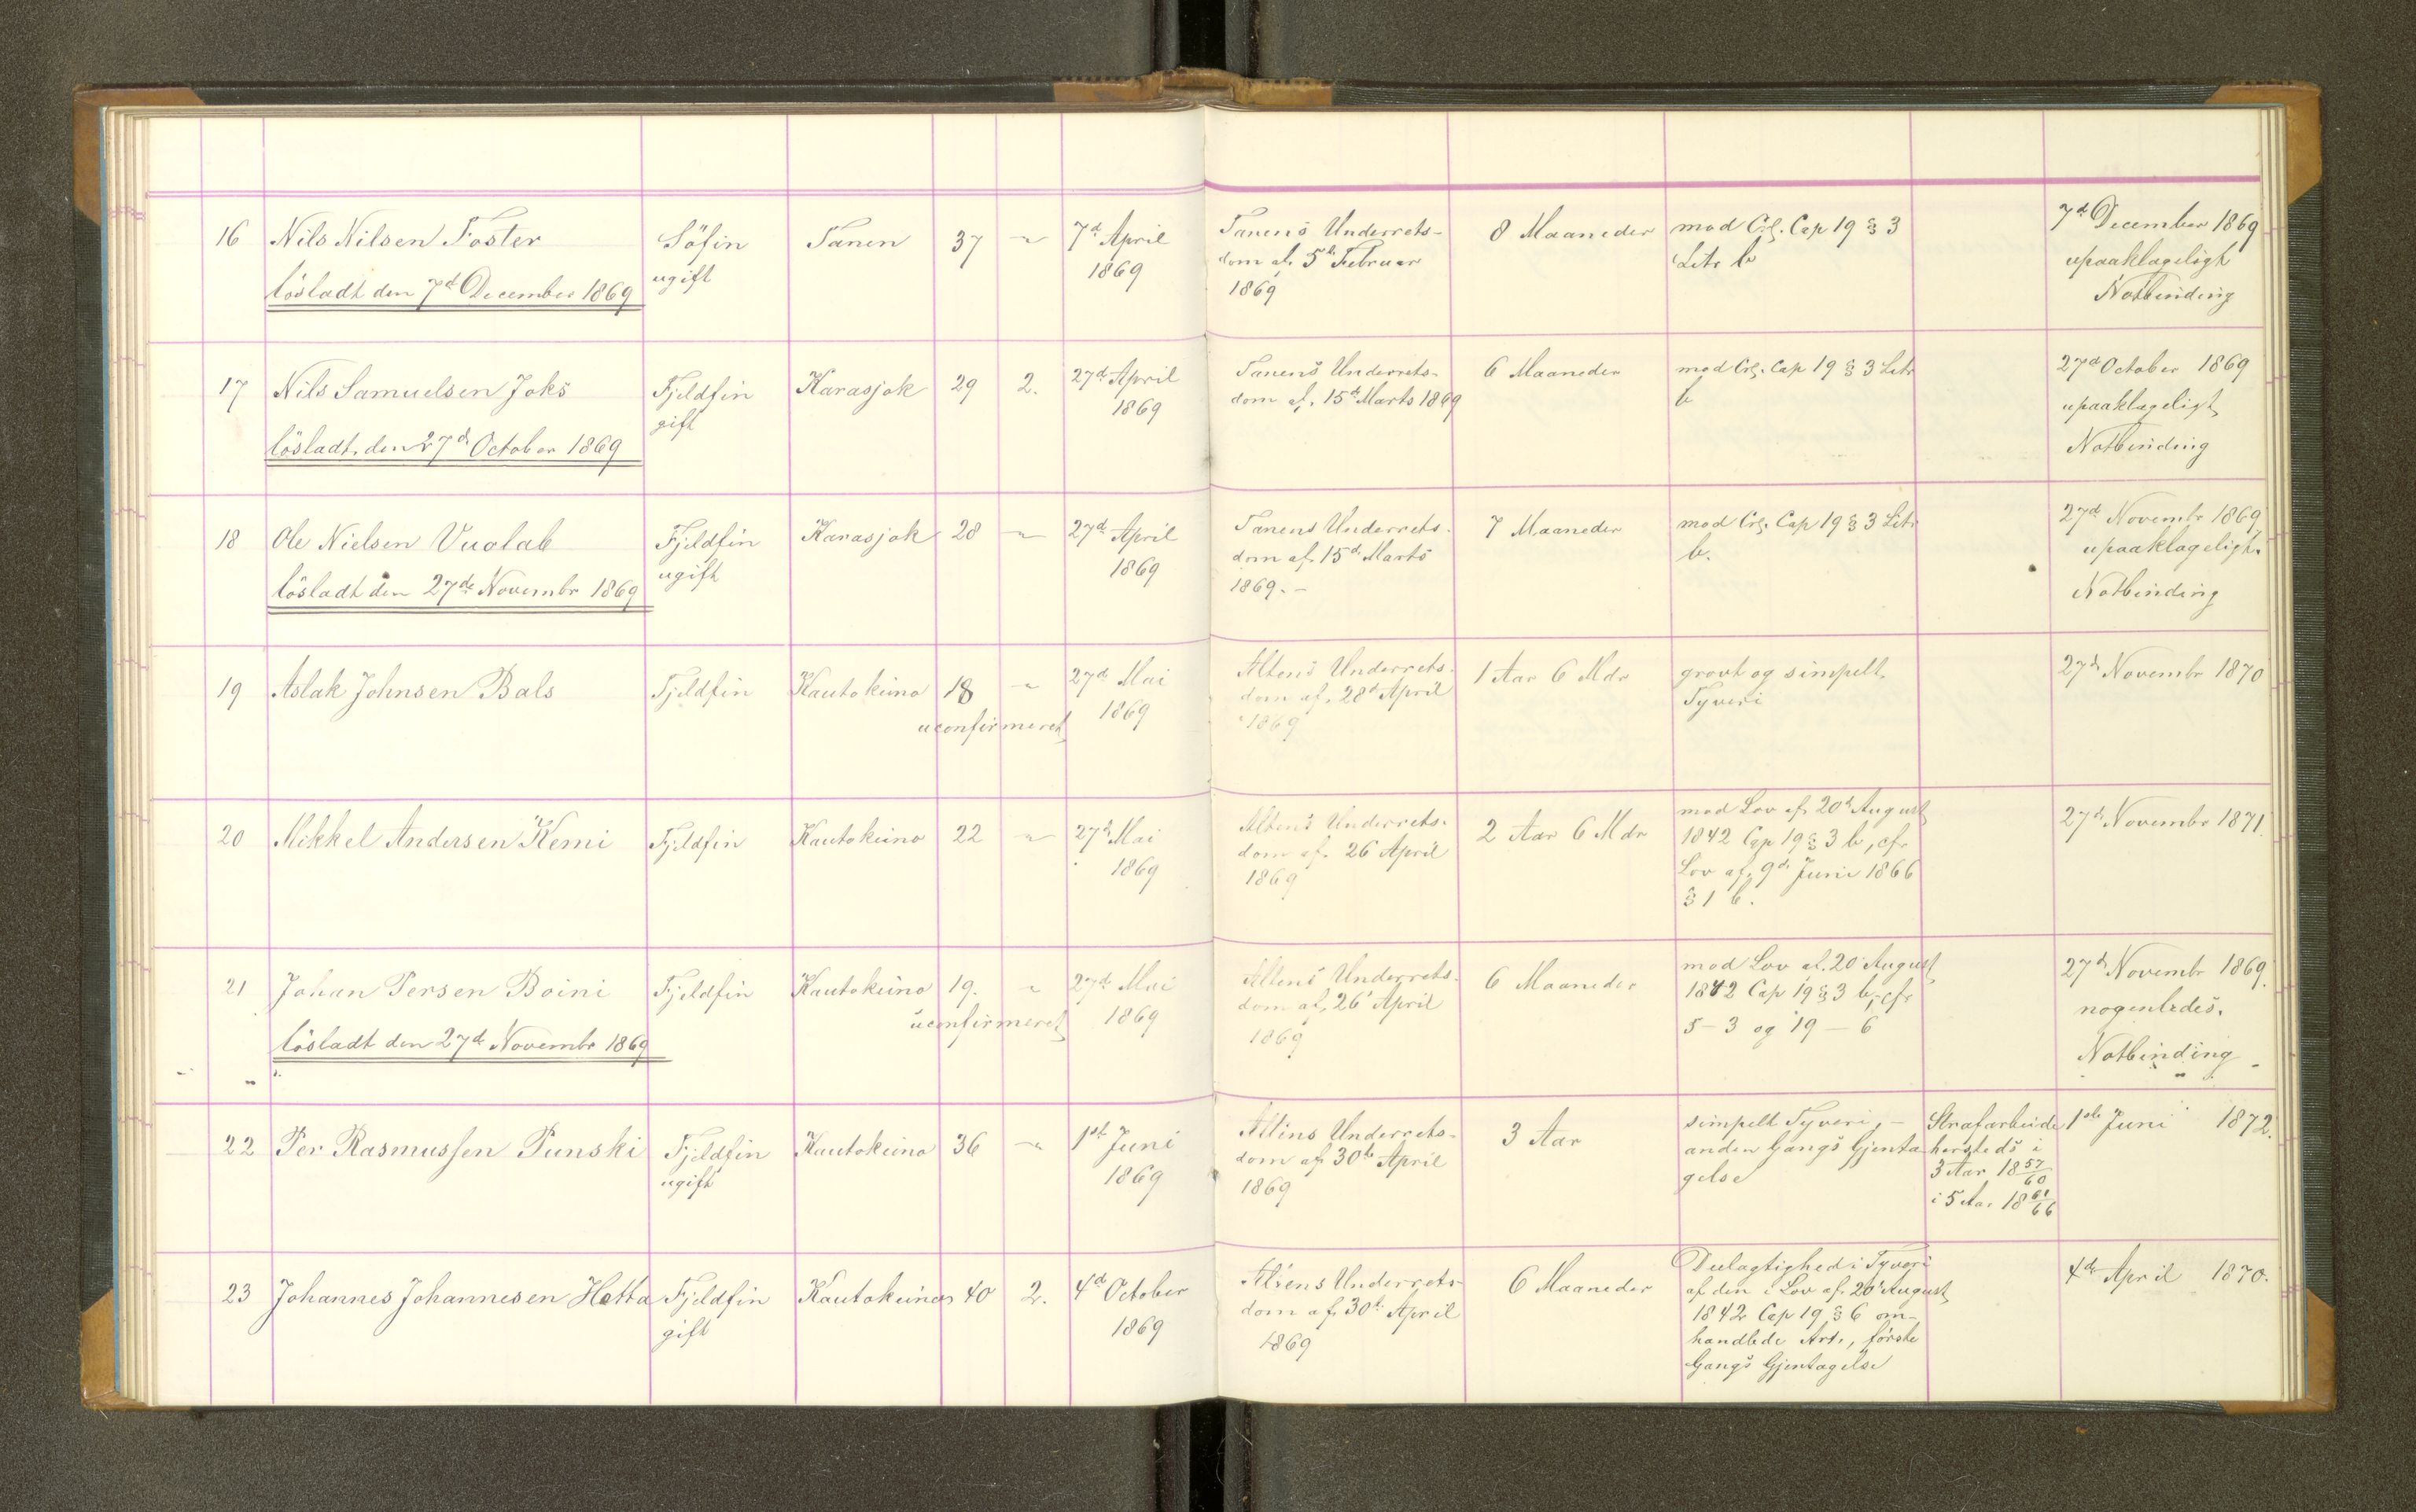 16 Nils Nilsen Foster Söfin Tanen 37 " 7d April Tanens Underrets- 8 Maaneder mod Crl. Cap 19 § 3 7d December 1869
löslадt den 7d December 1869 ugift 1869 dom af 5te Februar Litr b upaaklageligt
1869 Notbinding
17 Nils Samuelsen Joks Fjeldfin Karasjok 29 2. 27d April Tanens Underrets- 6 Maaneder mod Crl. Cap 19 § 3 Litr 27d October 1869
gift 1869 dom af 15d Marts 1869 b upaaklageligt
lösladt den 27d October 1869 Notbinding
18 Ole Nielsen Vuolab Fjeldfin Karasjok 28 " 27d April Tanens Underrets- 7 Maaneder mod Crl. Cap 19 § 3 Litr 27d Novembr 1869
lösladt den 27de Novembr 1869 ugift 1869 dom af 15d Marts b. upaaklageligt.
1869. - Notbinding
19 Aslak Johnsen Bals Fjeldfin Kautokeino 18 " 27d Mai Altens Underrets- 1 Aar 6 Mdr grovt og simpelt 27d Novembr 1870
uconfirmeret 1869 dom af 28d April Tyveri
1869
20 Mikkel Andersen Kemi Fjeldfin Kautokeino 22 " 27d Mai Altens Underrets- 2 Aar 6 Mdr mod Lov af 20d August 27d Novembr 1871.
1869 dom af 26 April 1842 Cap 19 § 3 b, cfr
1869 Lov af 9d Juni 1866
§ 1 b.
21 Johan Persen Boini Fjeldfin Kautokeino 19. " 27d Mai Altens Underrets- 6 Maaneder mod Lov af 20 August 27d Novembr 1869.
uconfirmeret 1869 dom af 26 April 1842 Cap 19 § 3 b, cfr nogenledes.
lösladt den 27d Novembr 1869 1869 5 - 3 og 19 - 6 Notbinding
22 Per Rasmussen Punski Fjeldfin Kautokeino 36 " 1ste Juni Altens Underrets- 3 Aar simpelt Tyveri, - Strafarbeide 1ste Juni 1872.
ugift 1869 dom af 30te April anden Gangs Gjenta hersteds i
1869 gelse 3 Aar 18 57/60
i 5 Aar 18 61/66
23 Johannes Johannesen Hetta Fjeldfin Kautokeino 40 2. 4d October Altens Underrets- 6 Maaneder Deelagtighed i Tyveri 4de April 1870.
gift 1869 dom af 30te April af den i Lov af 20d August
1869 1842 Cap 19 § 6 om-
handlede Art., første
Gangs Gjentagelse